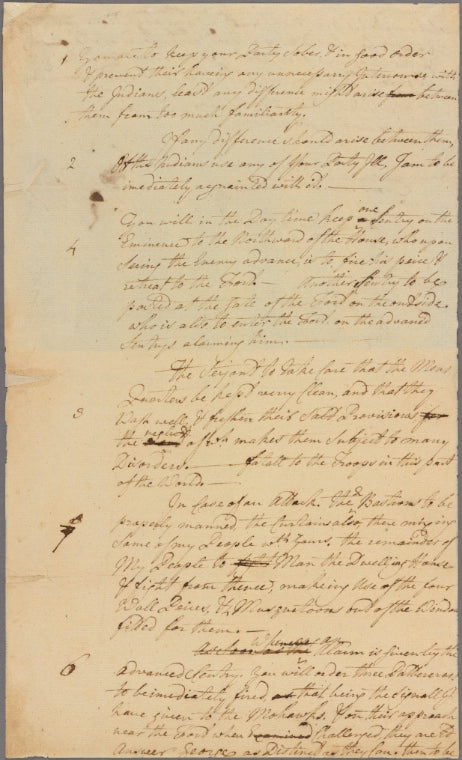 1 You are to keep your Party sober, & in good order
& prevent their haveing any unnecessary Intercourse with
the Indians, least any difference might arise from between
them from too much familiarity.
If any difference should arise between them,
2 If the Indians use any of Your Party Ill, I am to be
imediately acquainted with it. —
You will in the Day time keep one a Sentry on the
4 Eminence to the Northward of the House, who upon
seeing the Enemy advance, is to fire his peice &
retreat to the Ford — Another Sentry to be
posted at the Gate of the Ford on the outside
who is also to enter the Ford on the advanced
Sentrys alarming him. —
The Serjeant to take care that the Mens
Quarters be kept verry Clean, and that they
3 Wash well, & freshen their Salt Provisions for
the neglect of wh. makes them Subject to many
Disorders. —
of the World. —
In Case of an Attack. The 2 Bastions to be
properly manned, the Curtains also, there mixing
5 Some of my People wth. Yours. the remainder of
My People to Man the Dwelling House
& fight from thence, makeing Use of the four
Wall Peices, & Musquetoons out of the Window
fitted for them. —
Whenever an Alarm is given by the
6 advanced Sentry, You will order three
to be imediately fired, as that being the Signall I
have given to the Mohawks, & on their approach
near the Ford when examined Challenged, they are to
Answer George as Distinct as they can, then to be